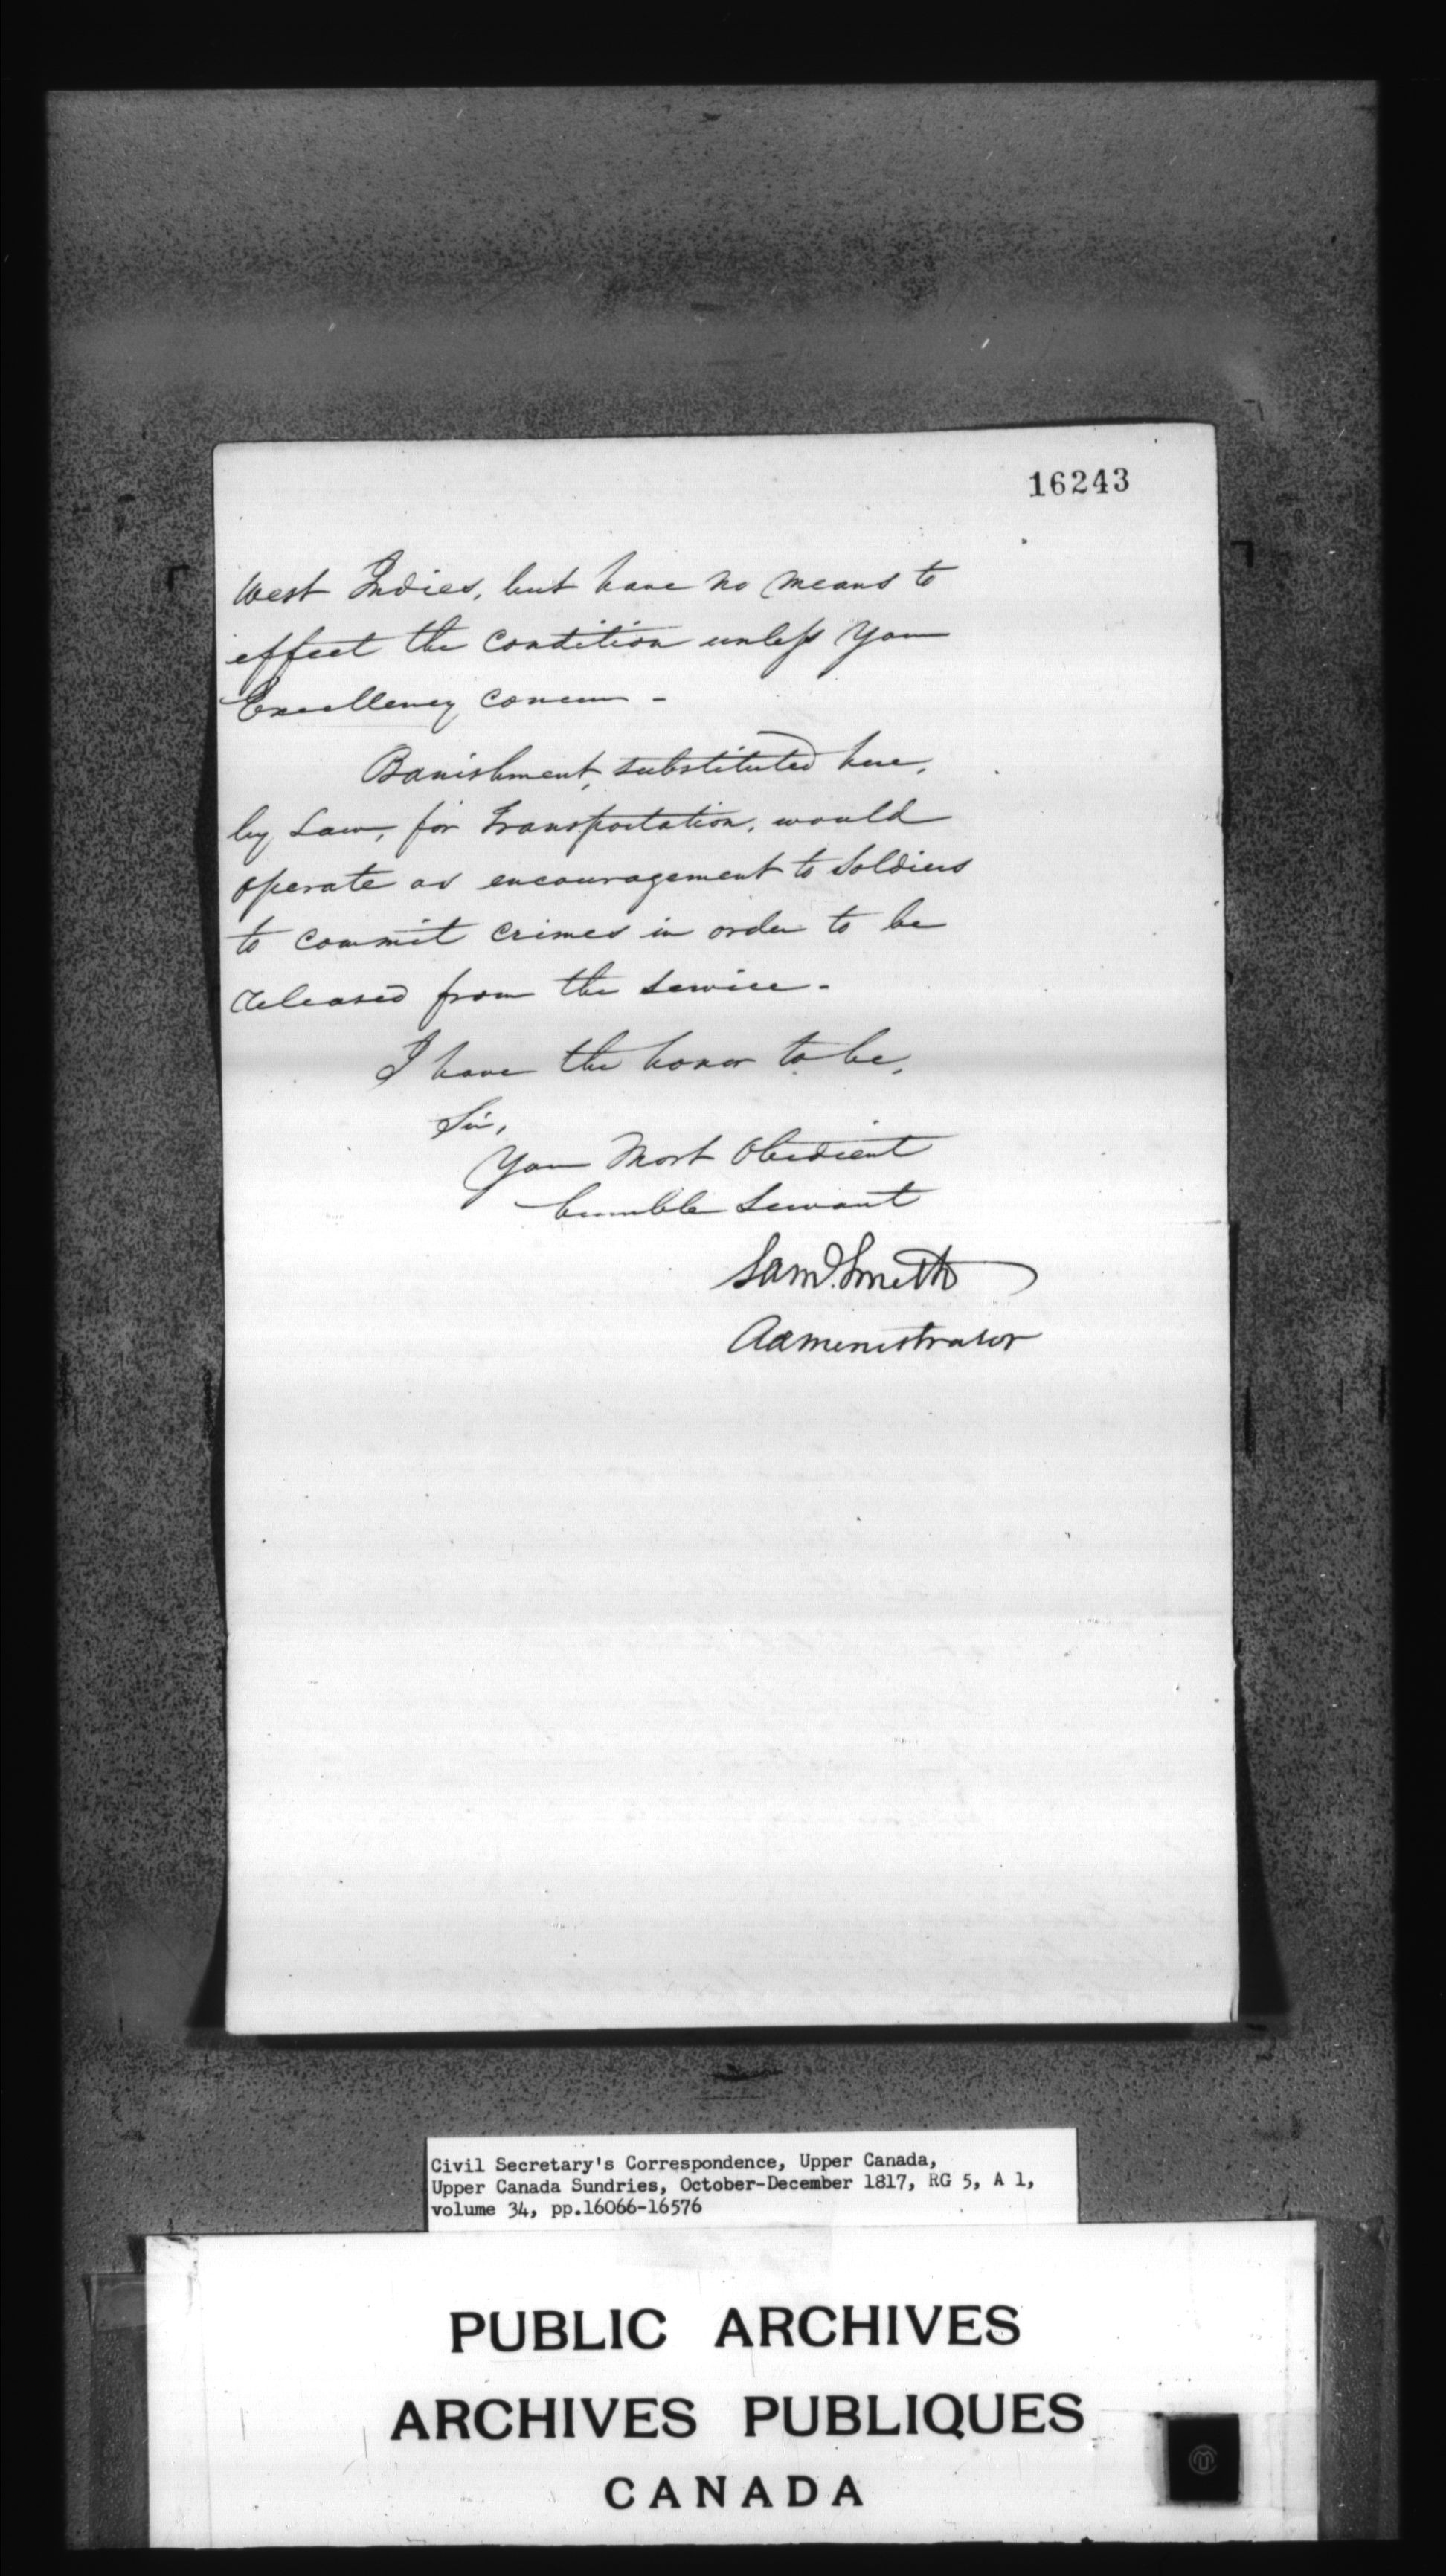 16243
West Indies, but have no means to
effect the Condition unless Your
Excellency Concur -
Banishment, substituted here,
by Law, for Transportation, would
operate as encouragement to Soldiers
to commit Crimes in order to be
released from the service -
I have the honor to be,
Sir,
Your Most Obedient
humble Servant
Saml. Smith
Administrator
Civil Secretary's Correspondence, Upper Canada,
Upper Canada Sundries, October-December 1817, RG 5, A 1,
volume 34, pp.16066-16576
PUBLIC ARCHIVES
ARCHIVES PUBLIQUES
CANADA